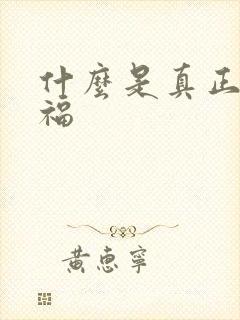 什麼是真正
福
黃惠寧